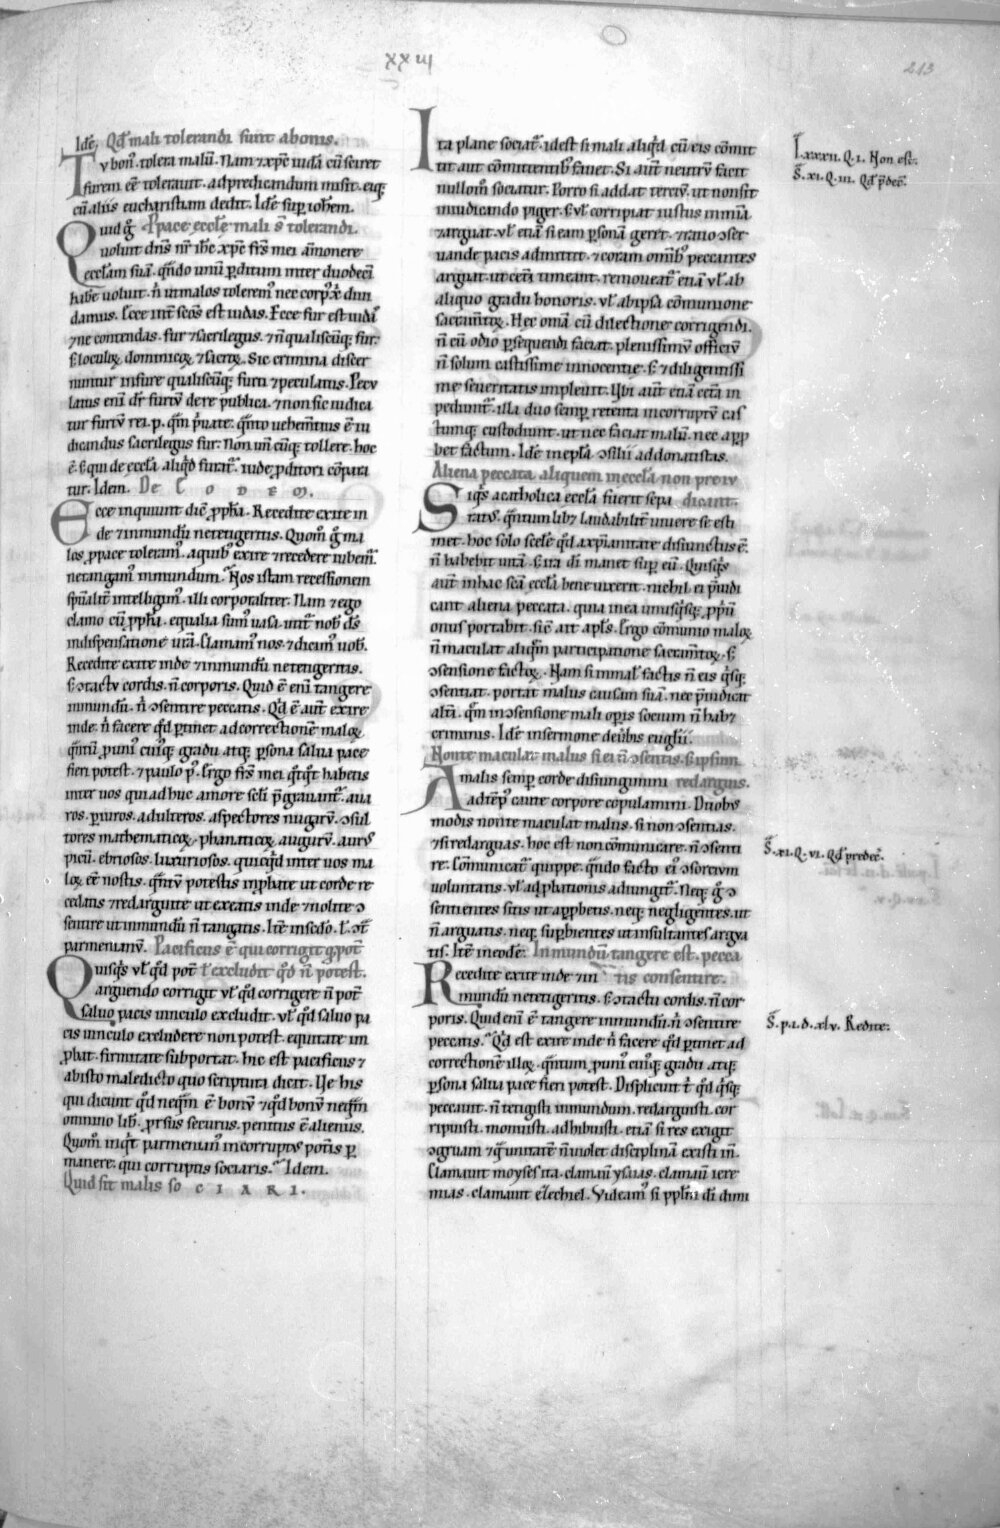 xxiij
213
Idē. Qđ mali tolerandi sunt a bonis.
Tu bonꝰ tolera malū. Nam ⁊ xp̄c iudā cū sciret
furem eē̄ toleravit. ad predicandum misit. eiq;
cū aliis eucharistiam dedit. Idē sup̄ ioħem.
Quid g̊ Pro pace eccłe mali s̄ tolerandi.
voluit dn̄s nr̄ iħc xp̄c fr̄s mei amonere
ecclām suā. qn̄do unū p̄ditum inter duodecī
habē voluit. n̄ ut malos toleremꝰ nec corpꝰ xp̄i divi
damus. Ecce int̄ scōs est iudas. Ecce fur est iudꝰ
⁊ ne contendas. fur ⁊ sacrilegus. ⁊ n̄ qualiscūq; fur.
s; loculoꝝ dominicoꝝ ⁊ sacroꝝ. Sic crimina discer
nuntur in fure qualiscūq; furti ⁊ peculatus. Pecu
latus eni dr̄ furtū de re publica. ⁊ non sic iudica
tur furtū rei p. qm̄ p̄uate. qn̄to vehem̄tius ē iu
dicandus sacrilegus fur. Non un̄ cūq; tollere. hoc
ē. s; qui de eccłā aliqđ furat̄. iude p̄ditori cōpara
tur. Idem. De CODEM.
Ecce inquiunt diē ꝓpħa. Recedite exite in
de ⁊ inmundū ne tengeritis. Quom̄ g̊ ma
los ꝓ pace toleramꝰ. a quibꝰ exire ⁊ recedere iubemꝰ.
ne tangamꝰ inmundum. Nos istam recessionem
spūalit̄ intelligimꝰ. illi corporaliter. Nam ⁊ ego
clamo cū ꝓpħa. equalia sumꝰ vasa. utit̄ nob̄ dš
in dispensatione urā. Clamamꝰ nos. ⁊ dicimꝰ uob̄.
Recedite exite inde ⁊ inmundū ne tengeritis.
s; ɔtactu cordis. n̄ corporis. Quid ē eni tangere
inmundū. n̄ ɔsentire peccatis. Qđ ē aut̄ exire
inde. n̄ facere qđ ꝑtinet ad correctionē maloꝝ
qn̄tū ꝓ uniꝰ cuiusq; gradu atq; ꝑsona salva pace
fieri potest. ⁊ paulo p̄. Ergo fr̄s mei qͥcūqͥ habetis
inter vos qui adhuc amore scli p̄gravant̄. ava
ros. ꝑiuros. adulteros. aspectores nugarū. ɔsul
tores mathematicoꝝ. phanaticoꝝ. augurū. auru
picū. ebriosos. luxuriosos. quicqđ inter vos ma
loꝝ eē nostis. qn̄tū potestis inp̄bate ut corde re
cedatis ⁊ redarguite ut exeatis inde ⁊ nolite ɔ
sentire ut inmundū n̄ tangatis. Itē in scdo. l. ɔt̄
parmenianū. Pacificus ē qui corrigit q̄ pot̄
Quisq̄s vł qđ pot̄ ł excludit qđ n̄ potest.
arguendo corrigit vł qđ corrigere n̄ pot̄
salvo pacis vinculo excludit. vł qđ salvo pa
cis vinculo excludere non potest. equitate im
ꝓbat. firmitate subportat. hic est pacificus ⁊
ab isto maledicto quo scriptura dicit. Ve his
qui dicunt qđ neq̄m ē bonū ⁊ qđ bonū neq̄m
omnino lib̄. ꝓrsus securus. penitus ē alienus.
Quom̄ inqͥt parmenianꝰ incorruptꝰ pot̄is ꝑ
manere. qui corruptis sociaris. Idem.
Quid sit malis soCIARI.
Ita plane sociat̄. id est si mali aliqđ cū eis cōmit
tit aut cōmittentibꝰ favet. Si aut̄ neutrū facit
nullom̄ sociatur. Porro si addat terciū. ut non sit
in vindicando piger. s; vł corripiat iustus in mīa
⁊ arguat. vł etiā si eam ꝑsonā gerit. ⁊ ratio ɔser
vande pacis admittit. ⁊ coram omībꝰ peccantes
arguat. ut cetī timeant. removeat̄ etiā vł ab
aliquo gradu honoris. vł ab ipsa cōmunione
sacram̄toꝝ. Hec omā cū dilectione corrigendi.
n̄ cū odio ꝑsequendi faciat. plenissimū officiū
n̄ solum castissime innocentie. s; ⁊ diligentissi
me severitatis implevit. Vbi aut̄ etiā cetā in
pediunt̄. illa duo semp̄ retenta incorruptū cas
tumq; custodiunt. ut nec faciat malū. nec app̄
bet factum. Idē in epłā ɔsilii ad donatistas.
Aliena peccata aliquem in eccłā non preiu
Siq̄s a catholica eccłā fuerit sepa dicant.
ratꝰ. qn̄tum libꝫ laudabilit̄ vivere se esti
met. hoc solo scełe qđ a xp̄ianitate disiunctus ē.
n̄ habebit vitā. s; ira di manet sup̄ eū. Quisq̄s
aut̄ in hac scā eccłā bene vixerit. nichil ei p̄iudi
cant aliena peccata. quia in ea unusq̄sq; ꝓpͥū
onus portabit. sic̄ ait aplš. Ergo cōmunio maloꝝ
n̄ maculat aliquē participatione sacram̄toꝝ. s;
ɔsensione factoꝝ. Nam si in mal̄ factis n̄ eis q̄sq;
ɔsentiat. portat malus causam suā. nec p̄iudicat
altī. qm̄ in ɔsensione mali opis socium n̄ hab⁊
criminis. Idē in sermone de ubis eugłii.
Non te maculat malus si ei n̄ ɔsentis. s; ipsum
A malis semp̄ corde disiungimini redarguis.
ad tēpꝰ caute corpore copulamini. Duobꝰ
modis non te maculat malus. si non ɔsentias.
⁊ si redarguas. hoc est non cōmunicare. n̄ ɔsenti
re. Cōmunicat̄ quippe. qn̄do facto eiꝰ ɔsorcium
voluntatis. vł adꝓbationis adiungit̄. Neq; g̊ ɔ
sentientes sitis ut app̄betis. neq; negligentes. ut
n̄ arguatis. neq; supbientes ut insultantes argua
tis. Itē in eodē. Inmundū tangere est. pecca
Recedite exite inde ⁊ in tis consentire.
mundū ne tetigeritis. s; ɔtactu cordis. n̄ cor
poris. Quid eni ē tangere inmundū. n̄ ɔsentire
peccatis. Qđ est exire inde n̄ facere qđ ꝑtinet ad
correctionē illoꝝ. qn̄tum ꝓ uniꝰ cuiꝰq; gradu atq;
ꝑsona salva pace fieri potest. Displicuit t̄ qđ qͥsq;
peccavit. n̄ tetigisti inmundum. redarguisti. cor
ripuisti. monuisti. adhibuisti. etiā si res exigit
ɔgruam ⁊ q̄ unitatē n̄ violet disciplinā existi in̄.
Clamavit moyses ita. clamavit ysaias. clamavit iere
mias. clamavit ezechiel. Videamꝰ si ꝓpħa di dimi
I. xxxii. Q. i. Non est.
S̄. xi. Q. iii. Qđ p̄dec̄.
S̄. xi. Q. vi. Qđ predec̄.
S̄. p. i. d. xlv. Redite.